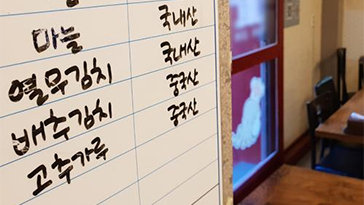 마늘 국내산
열무김치 국내산
배추김치 중국산
고추가루 중국산